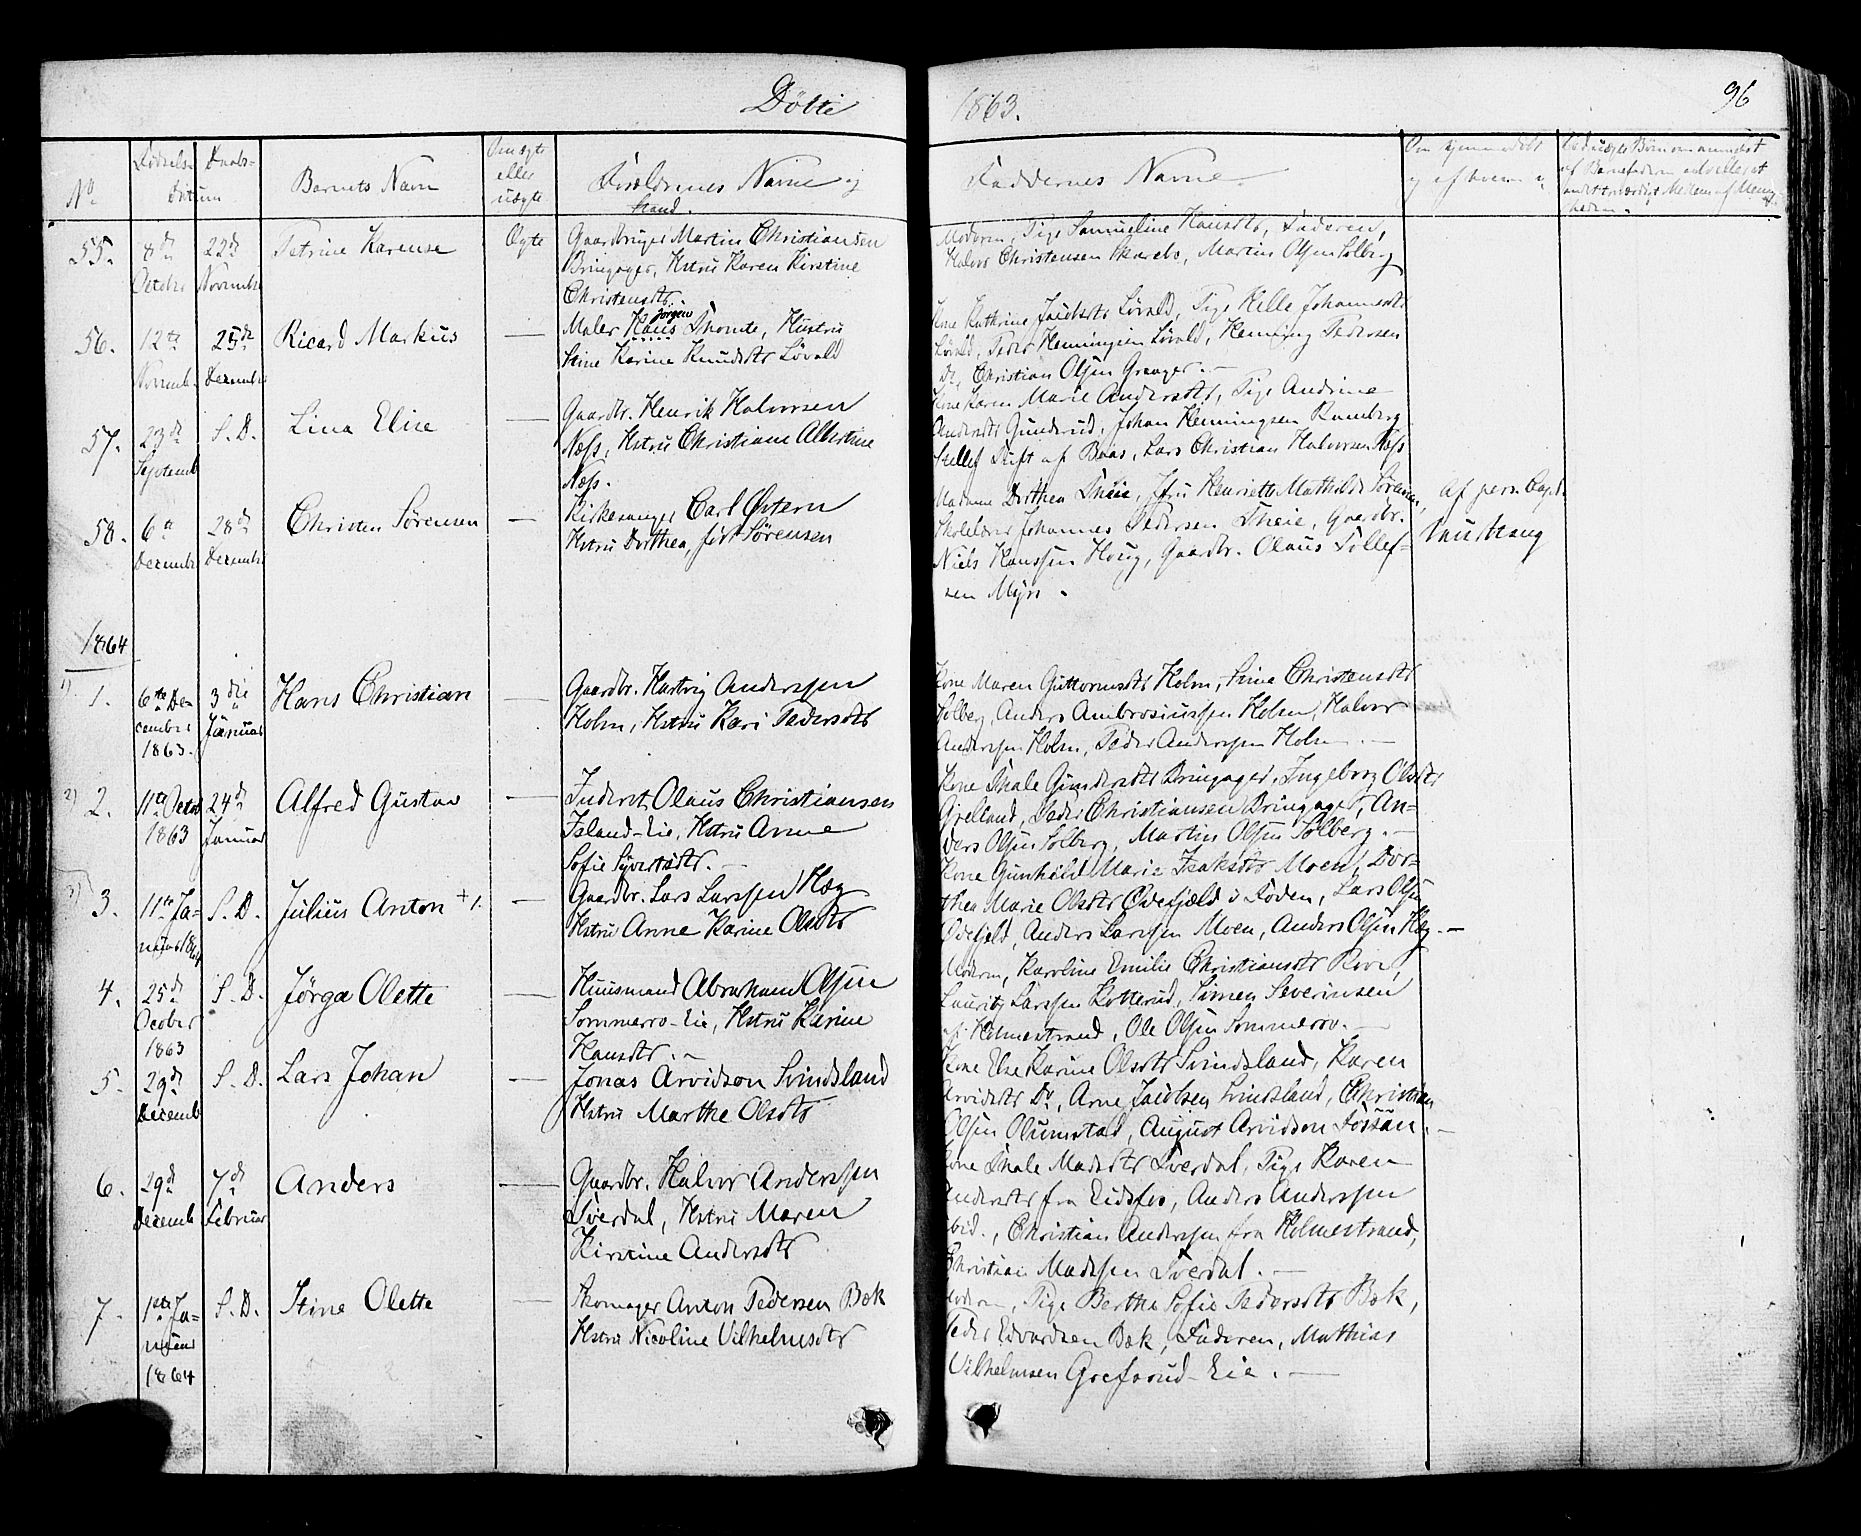 Döbte
1863.
96
No
Fødsels
Daabs-
Datum
Barnets Navn
Om ægte
eller
uægte
Forældrenes Navne og
Stand.
Faddernes Navne
Om hjemmedøbt
og af hvem
55.
8de
October
22de
November
Petrine Karense
Ægte
Gaardbruger Martin Christiansen
Bringager, Hstrü Karen Kirstine
Christensdtr
Moderen, Pige Samueline Hansdtr, Faderen,
Halvor Christensen Skarebo, Martin Olsen Solberg
56.
12te
Novemb.
25de
December
Ricard Markus
Maler Hans Jørgen Thomte, Hustru
Karine Knudsdtr Løvald
Kone Kathrine Jacobsdtr Løvald, Pige Helle Johannsdtr
Løvald, Peder Henningsen Løvald, Henning Pedersen
Do, Christian Olsen Grager.
57.
23de
Septemb
S. D.
Lina Elise
Gaardbr. Henrik Halvorsen
Næss, Hstrü Christiane Albertine
Næss.
Kone Karen Marie Andersdtr, Pige Andrine
Andersdtr Gunderud, Johan Henningsen Ramberg
Lars Christian Halvorsen Næss
58.
6te
December
28de
December
Christen Sörensen
Kirkesanger Carl Østern
Hstrü Dorthea, født Sørensen
Madame Dorthea Theie, Jfru Henriette Mathilde Sørensen,
Skolelærer Johannes Pedersen Theie, Gaardbr.
Niels Hanssen Houg, Gaardbr. Olaus Tollef-
sen Myre.
Af pers. Capel.
1864
1) 1.
6te De-
cember
1863.
3die
Januar
Hans Christian
Gaardbr. Hartvig Anderssen
Holm, Hstrü Kari Pedersdtr
Kone Maren Guttormsdtr Holm, Sine Christensdtr
Solberg, Anders Ambrosiussen Holm, Halvor
Anderssen Holm, Peder Anderssen Holm.
2) 2.
11te Octob
1863
24de
Januar
Alfred Gustav
Inderst, Olaus Christiansen
Island-Eie, Hstrü Anne
Sofie Syvertsdtr.
Kone Thale Gundersdtr Bringager, Ingeborg Olsdtr
Grelland, Peder Christiansen Bringager, An-
ders Olsen Solberg, Martin Olsen Solberg.
3) 3.
11te Ja-
nuar 1864
S. D.
Julius Anton +1.
Gaardbr. Lars Larssen Hæg
Hstrü Anne Karine Olsdtr
Kone Gunhild Marie Isaksdtr Moen, Dor-
thea Marie Olsdtr Ødefjeld i Foden, Lars Olsen
Ødefjeld, Anders Larssen Moen, Anders Olsen Hæg.
4.
25de
Ocober
1863
S. D.
Jörga Olette
Huusmand Abraham Olsen
Sommerro-Eie, Hstrü Karine
Hansdtr.
Moderen, Karoline Emilie Christiansdtr Rove,
Lauritz Larssen Kotterud, Simen Severinsen
af Holmestrand, Ole Olsen Sommerro.
5.
29de
Decemb
S. D.
Lars Johan
Jonas Arvidson Svindsland
Hstrü Marthe Olsdtr
Kone Else Karine Olsdtr Svindsland, Karen
Arvidsdtr Do, Arne Jacobsen Svindsland, Christian
Olsen Olumstad, August Arvidson Fossan.
6.
29de
Decemb
7de
Februar
Anders
Gaardbr. Halvor Anderssen
Sverdal, Hstrü Maren
Kirstine Andersdtr
Kone Thale Madsdtr Sverdal, Pige Karen
Andersdtr fra Eidsfos, Anders Anderssen
ibid., Christian Anderssen fra Holmestrand,
Christian Madssen Sverdal.
7.
1ste Ja-
nuar
1864
S. D.
Stine Olette
Skomager Anton Pedersen Bæk
Hstrü Nicoline Vilhelmsdtr
Moderen, Pige Berthe Sofie Pedersdtr Bæk,
Peder Edvardsen Bæk, Faderen, Mathias
Vilhelmsen Grefsrud-Eie.